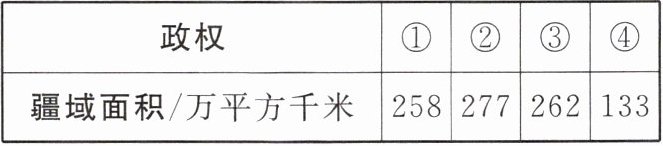 政权 ① ② ③ ④
疆域面积/万平方千米 258 277 262 133